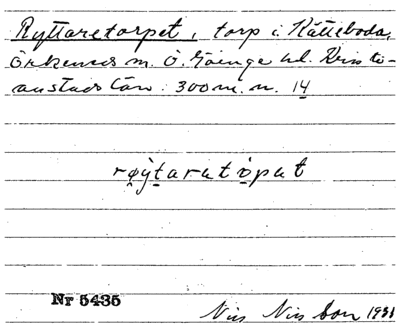 Ryttaretorpet, torp i Kätteboda,
Örkeneds sn. Ö. Göinge hd. Kristi-
anstads län. 300 m. n. 14
røýtaratòpat
Nr 5435
Nils Nilsson 1931